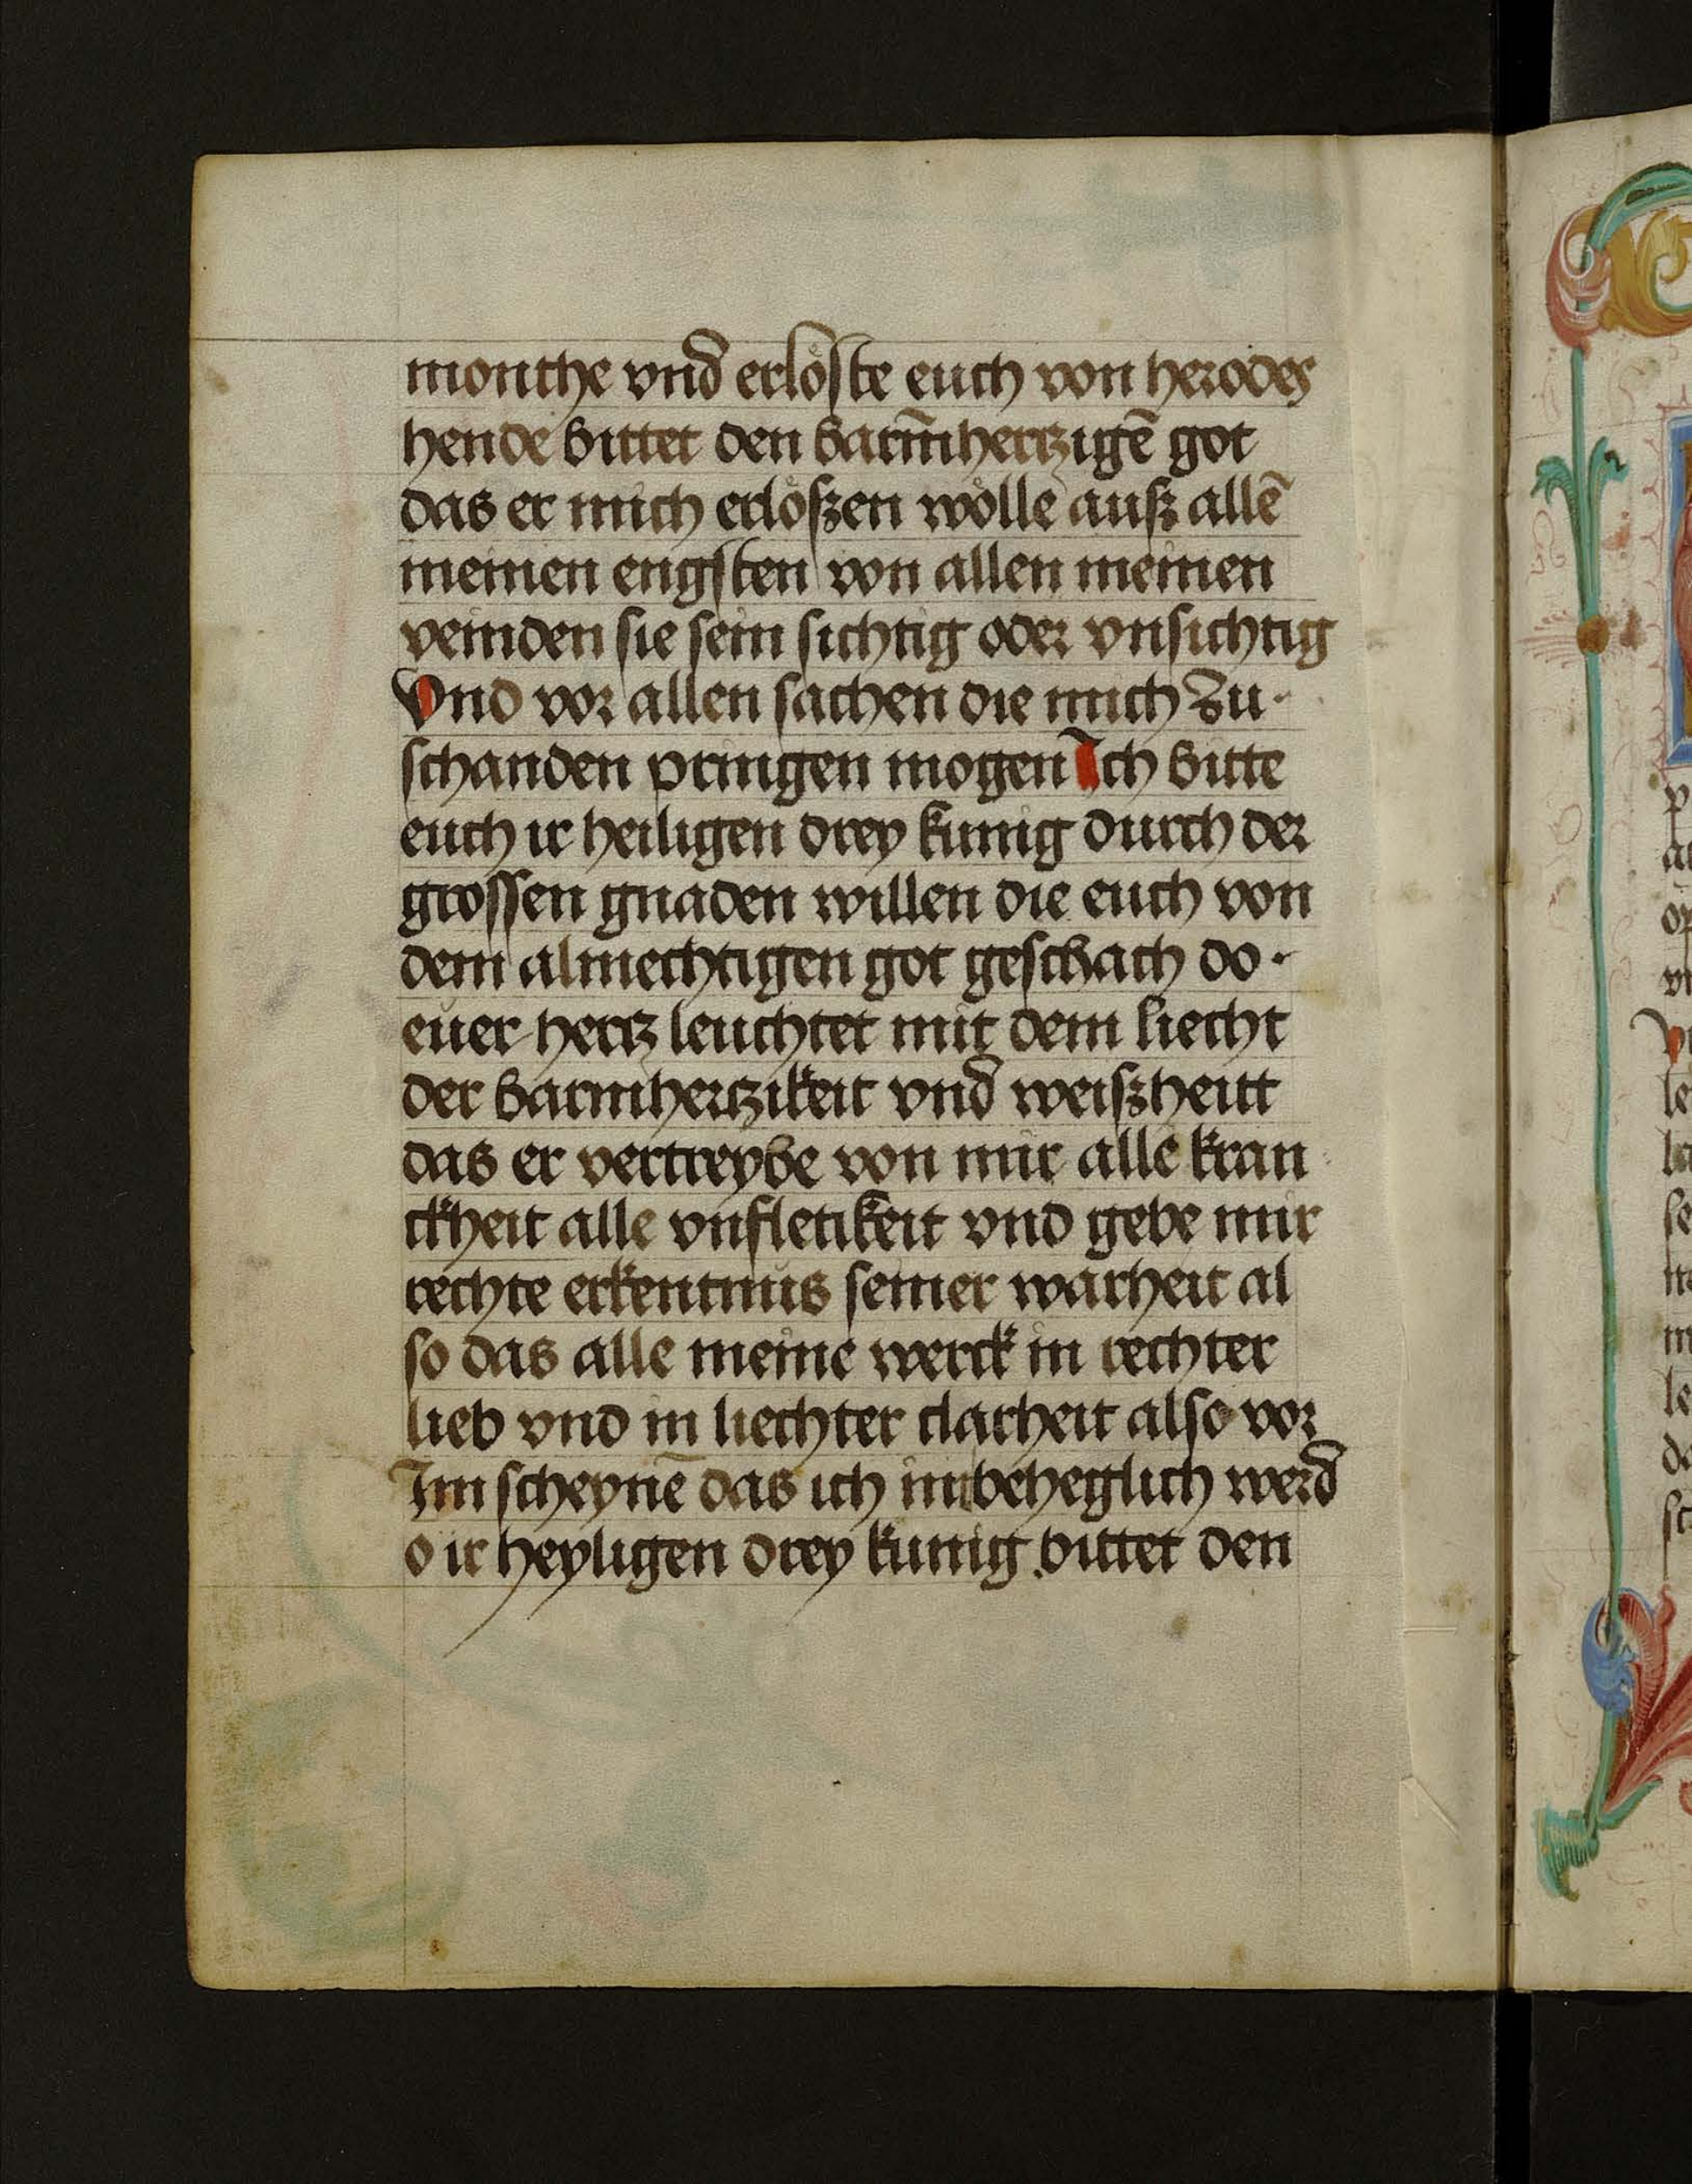 monthe vnd erlöste euch von herodes
hende bittet den barm̄hertzigē got
das er mich erlößen wölle auß allē
meinen engsten von allen meinen
veinden sie sein sichtig oder vnsichtig
Vnd vor allen sachen die mich zu-
schanden pringen mogen Ich bitte
euch ir heiligen drey kunig durch der
grossen gnaden willen die euch von
dem almechtigen got geschach do-
euer hertz leuchtet mit dem liecht
der barmhertzikeit vnd weißheitt
das er vertreybe von mir alle kran
ckheit alle vnfletikeit vnd gebe mir
rechte erkentnus seiner warheit al
so das alle meine werck in rechter
lieb vnd in liechter clarheit also vor
Im scheynē das ich im beheglich werd
o ir heyligen drey kunig bittet den